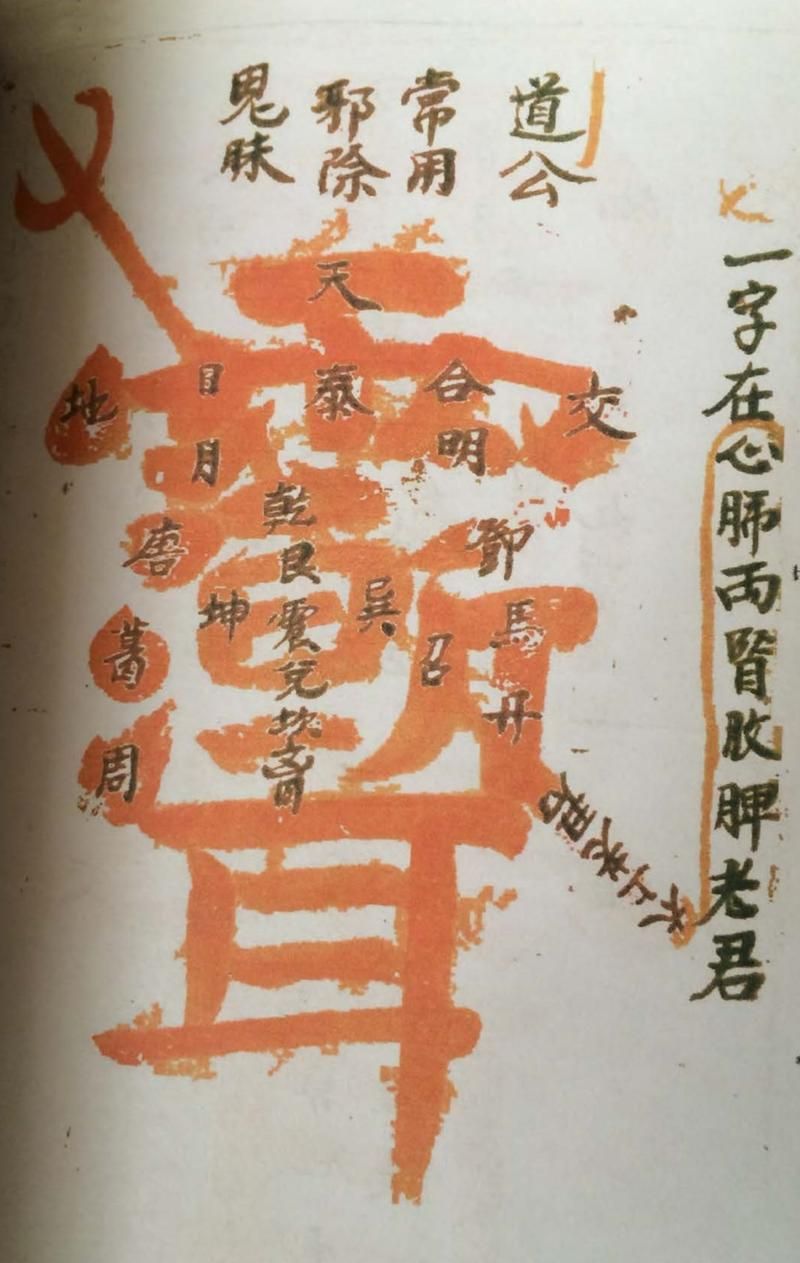 一字在心肺両腎肷脾老君
道公
常用
邪除
鬼昧
天
地
日月
泰
合明
交
唐
葛
周
乾艮震兌坎离
坤
巽
鄧
馬
召
太上老君